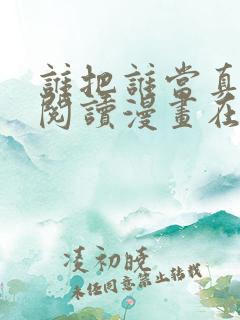 誰把誰當真
閱讀漫畫在
凌初晚
未经同意禁止转载